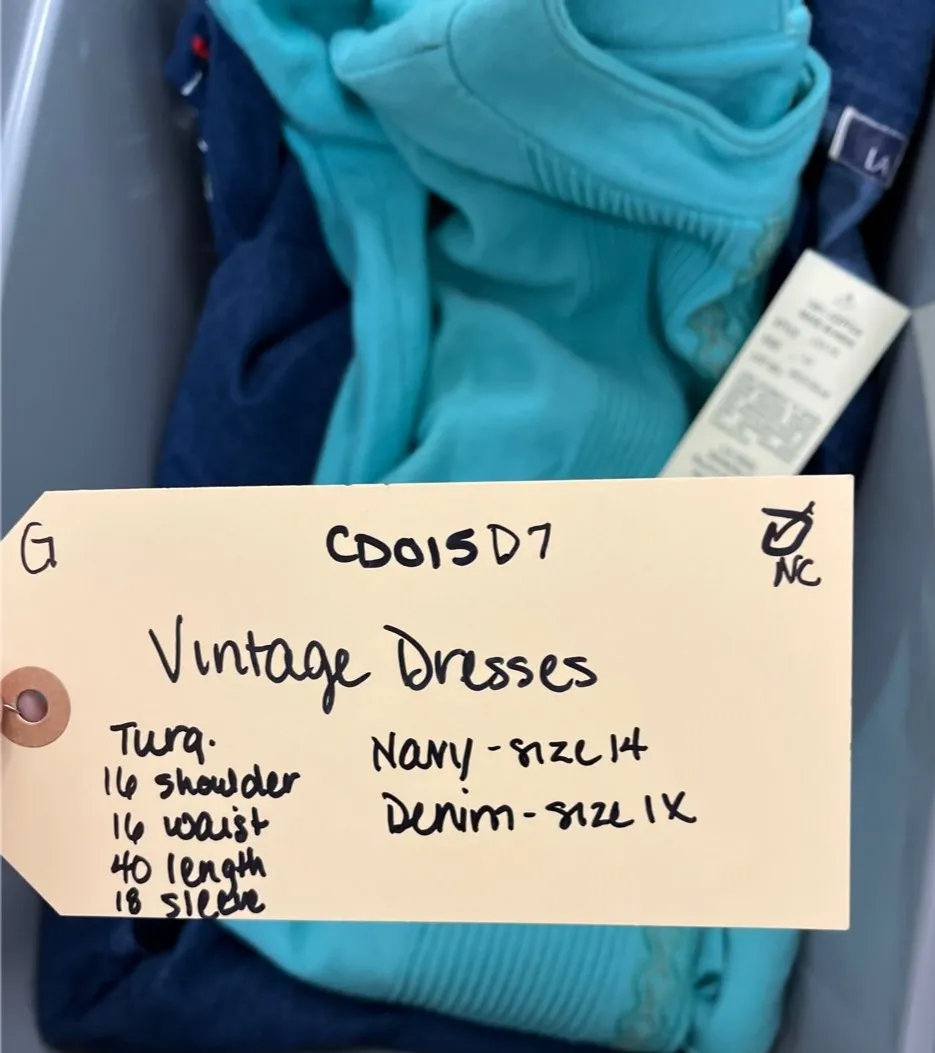 G
CD015D7
NC
Vintage Dresses
Turq.
16 shoulder
16 waist
40 length
18 sleeve
Navy - size 14
Denim - size 1X
LA